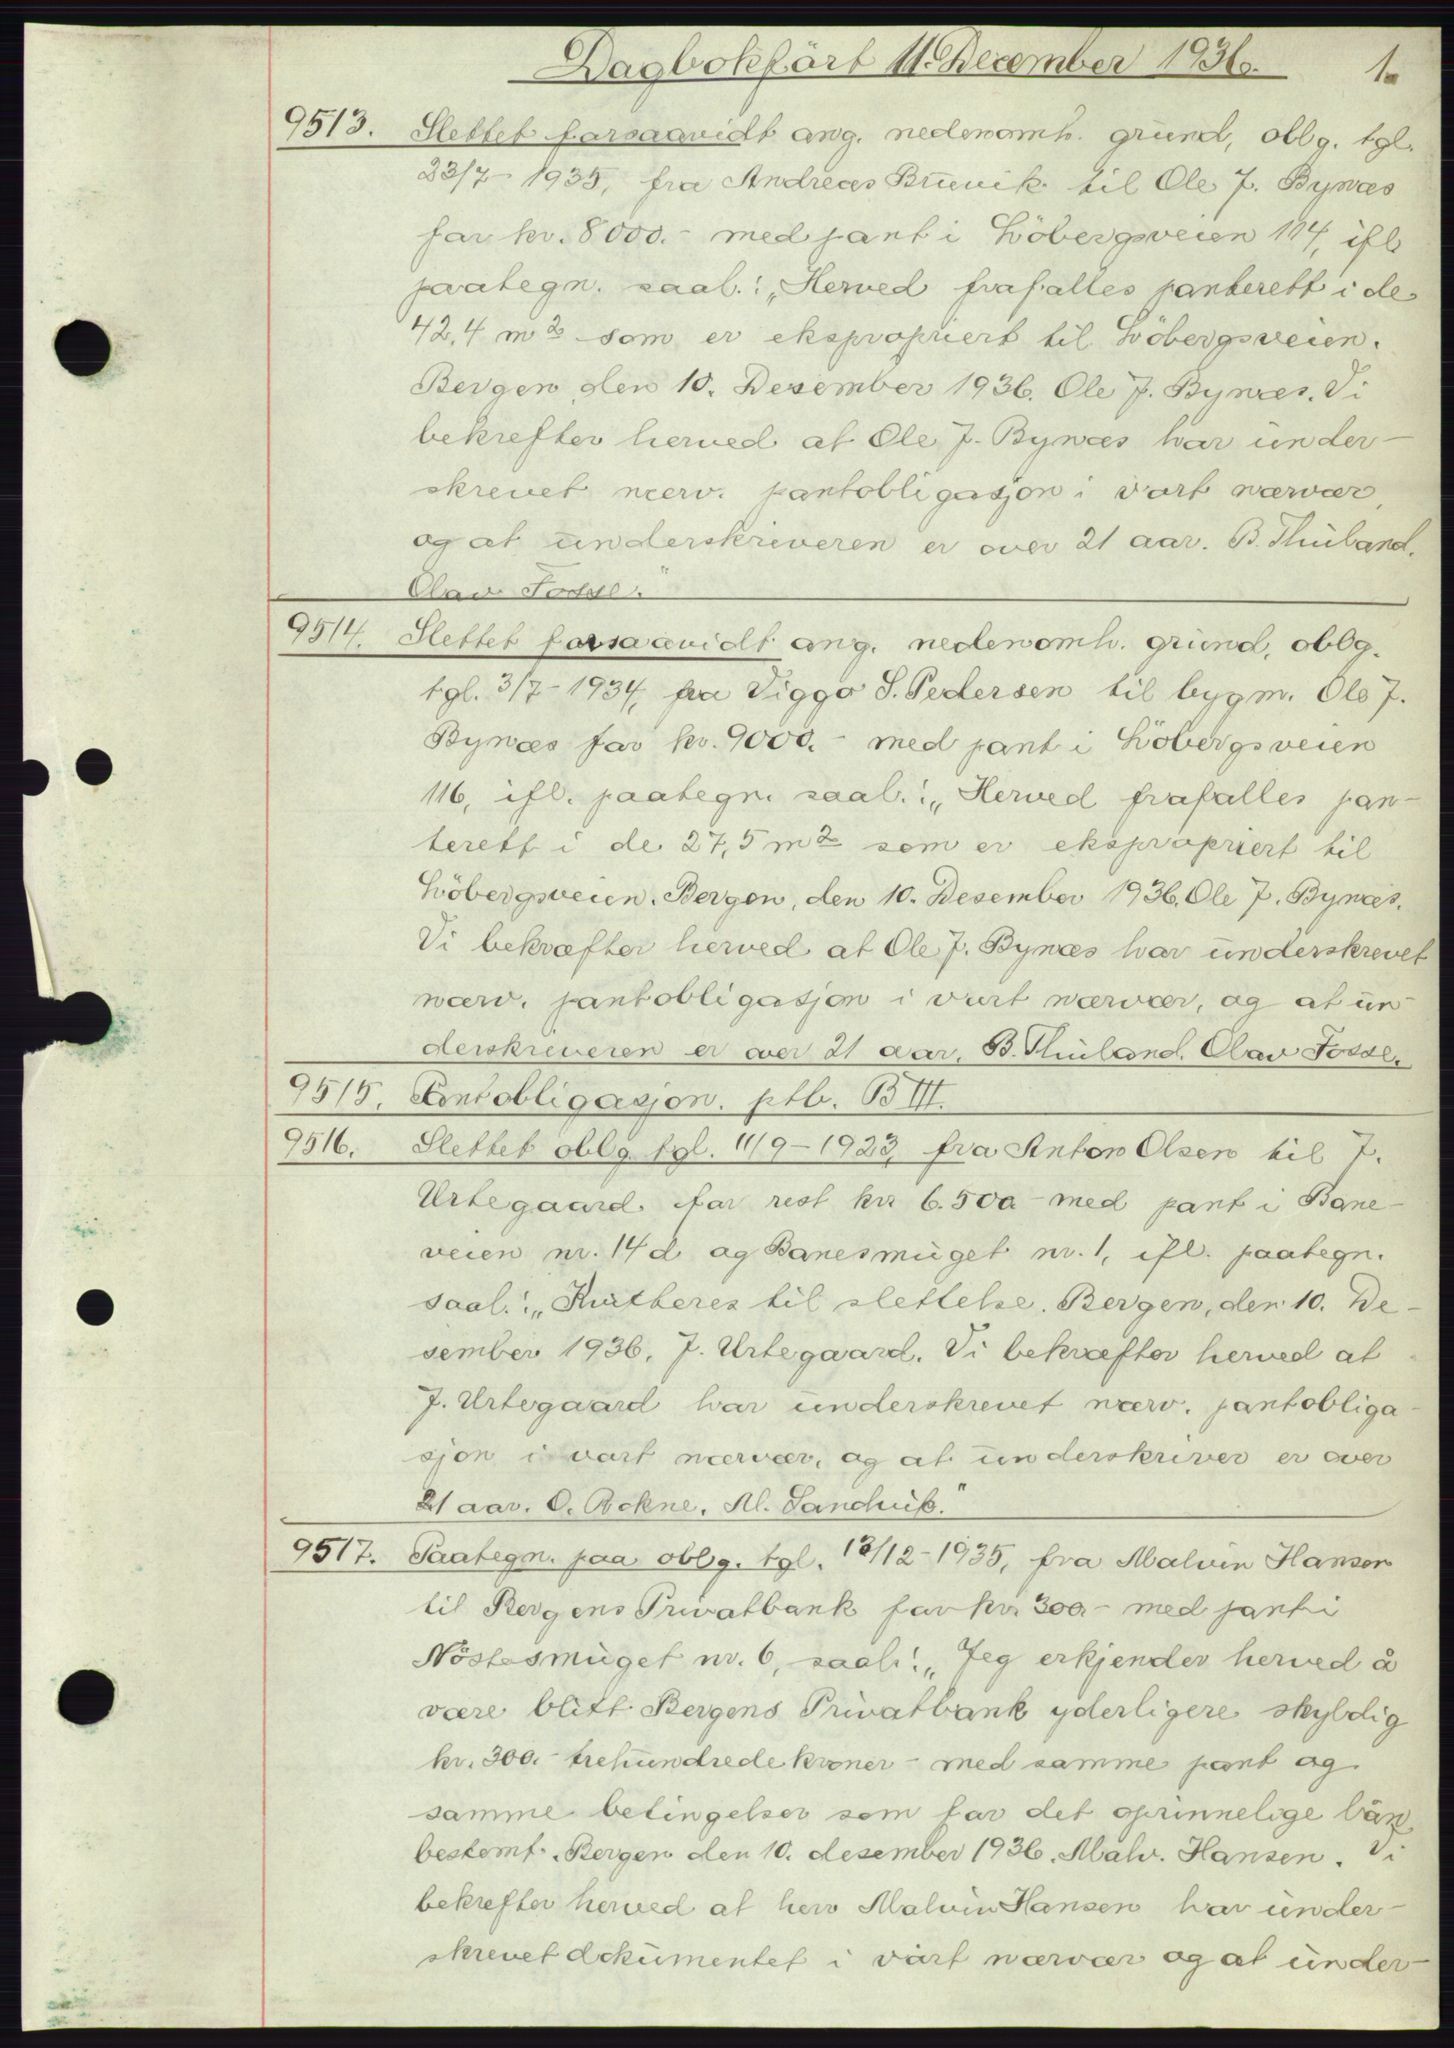 Dagbokfört 11. December 1936. 1.
9513. Slettet forsaavidt ang. nedenomh. grund, oblg. tgl.
23/7 - 1935, fra Andreas Bruvik til Ole J. Bynæs
for kr. 8000.- med pant i Löbergsveien 114, ifl
paategn. saal.: „Herved frafalles panterett i de
42,4 m2 som er ekspropriert til Löbergsveien.
Bergen, den 10. Desember 1936. Ole J. Bynæs. Vi
bekrefter herved at Ole J. Bynæs har under-
skrevet nærv. pantobligasjon i vart nærvær,
og at underskriveren er over 21 aar. B. Thuland.
Olav Fosse."
9514. Slettet forsaavidt ang. nedenomh. grund, oblg.
tgl. 3/7 - 1934, fra Viggo S. Pedersen til bygm. Ole J.
Bynæs for kr. 9000.- med pant i Löbergsveien
116, ifl. paategn. saal.: „Herved frafalles pan-
terett i de 27,5 m2 som er ekspropriert til
Löbergsveien. Bergen, den 10. Desember 1936. Ole J. Bynæs.
Vi bekræfter herved at Ole J. Bynæs har underskrevet
nærv. pantobligasjon i vart nærvær, og at un-
derskriveren er over 21 aar. B. Thuland. Olav Fosse.
9515. Pantobligasjon. ptb. B III.
9516. Slettet oblg. tgl. 11/9 - 1923, fra Anton Olsen til J.
Urtegaard. for rest kr 6.500 - med pant i Bane-
veien nr. 14 d og Banesmuget nr. 1, ifl. paategn.
saal.: „Kvitteres til slettelse. Bergen, den 10. De-
sember 1936. J. Urtegaard. Vi bekræfter herved at
J. Urtegaard har underskrevet nærv. pantobliga-
sjon i vart nærvær, og at underskriver er over
21 aar. O. Rokne. Al. Sandvik."
9517. Paategn. paa oblg. tgl. 13/12 - 1935, fra Malvin Hansen
til Bergens Privatbank for kr. 300.- med pant i
Nöstesmuget nr. 6, saal.: „Jeg erkjender herved å
være blitt Bergens Privatbank yderligere skyldig
kr. 300.- trehundrede kroner - med samme pant og
samme betingelser som for det oprinnelige lån
bestemt. Bergen den 10. desember 1936. Malv. Hansen. Vi
bekrefter herved at herr Malvin Hansen har under-
skrevet dokumentet i vårt nærvær og at under-